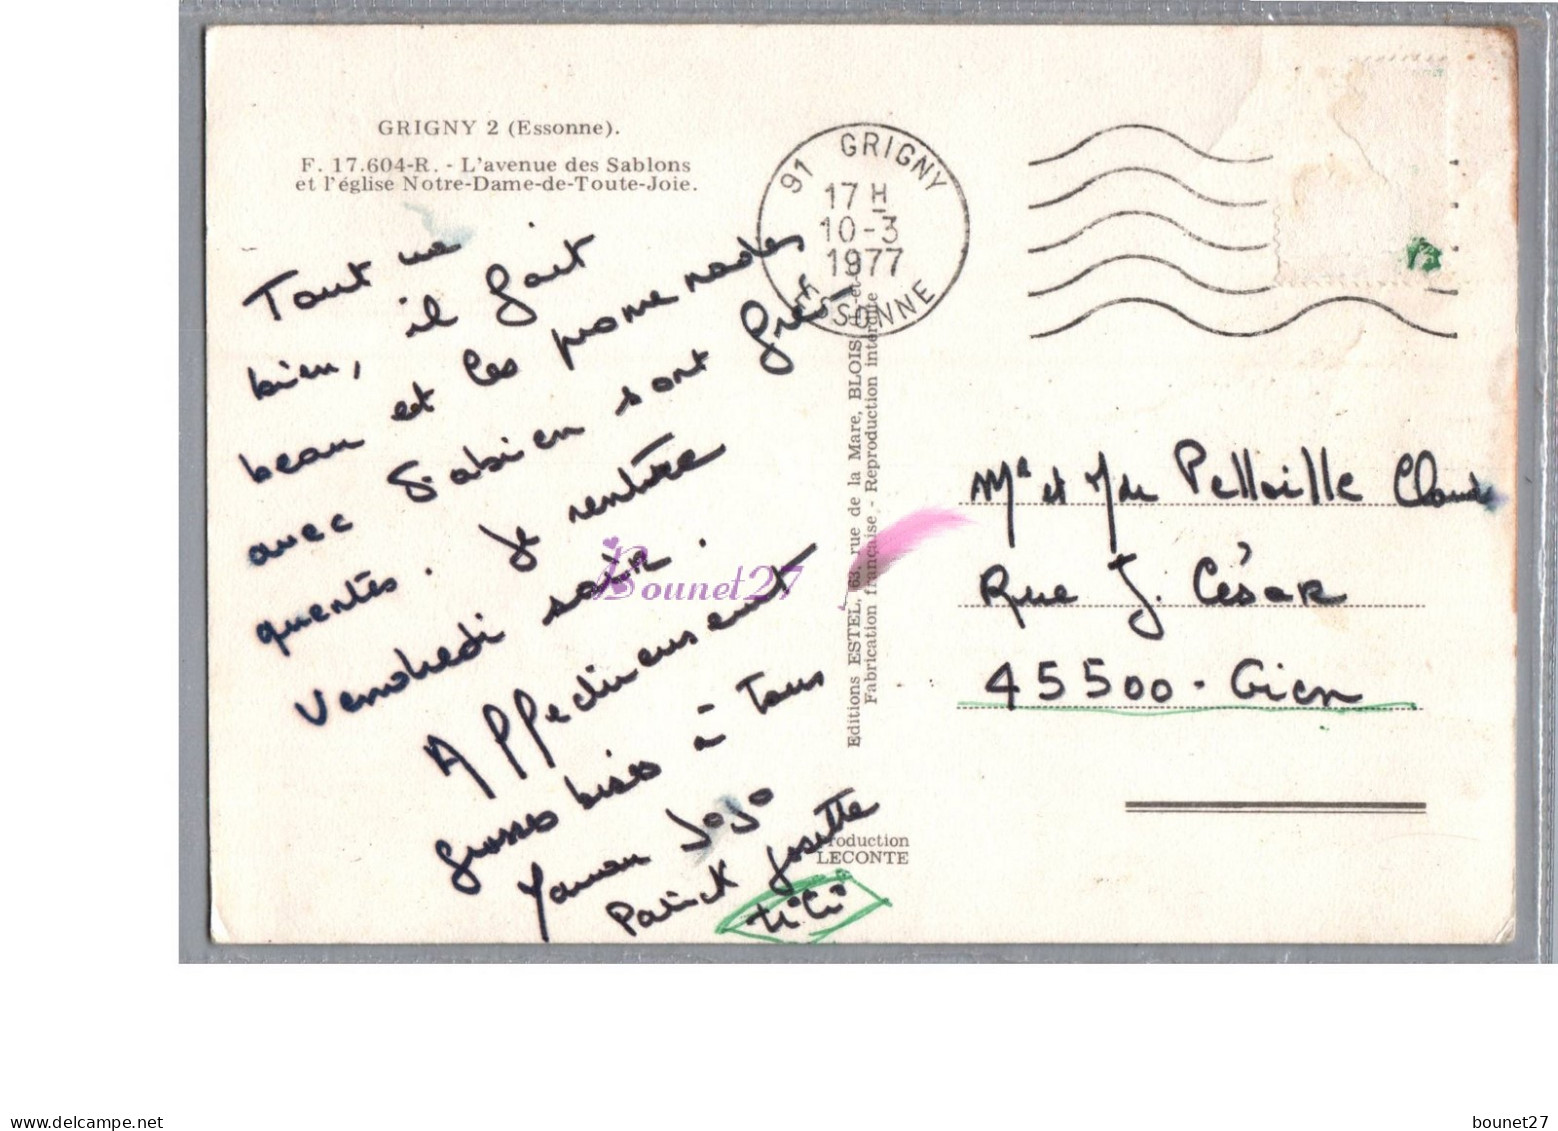 GRIGNY 2 (Essonne).
F. 17.604-R. - L'avenue des Sablons
et l'église Notre-Dame-de-Toute-Joie.
91 GRIGNY
17 H
10-3
1977
ESSONNE
Tout va
bien, il fait
beau et les promenades
avec Fabien sont fré
quentés. Je rentre
Vendredi soir.
Affectueusement
grosses bises à tous
Maman Jojo
Patrick Josette
titi
Editions ESTEL, 63, rue de la Mare, BLOIS
Fabrication française - Reproduction interdite
Production
LECONTE
Mr et Mde Pelloille Claude
Rue J. César
45500 - Gien
Bounet27
www.delcampe.net
bounet27